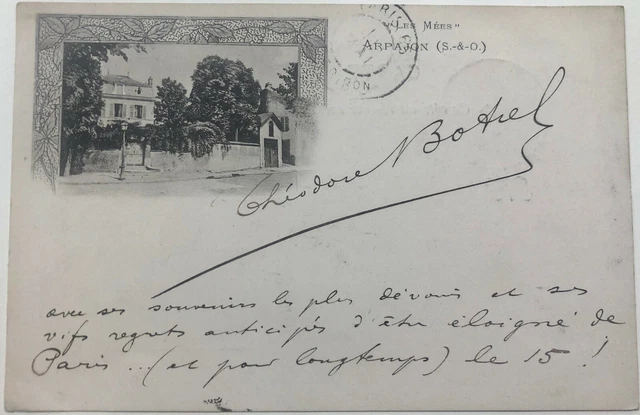 "Les Mées"
Arpajon (S.-&-O.)
Théodore Botrel
avec ses souvenirs les plus dévoués et ses
vifs regrets anticipés d'être éloigné de
Paris... (et pour longtemps) le 15 !